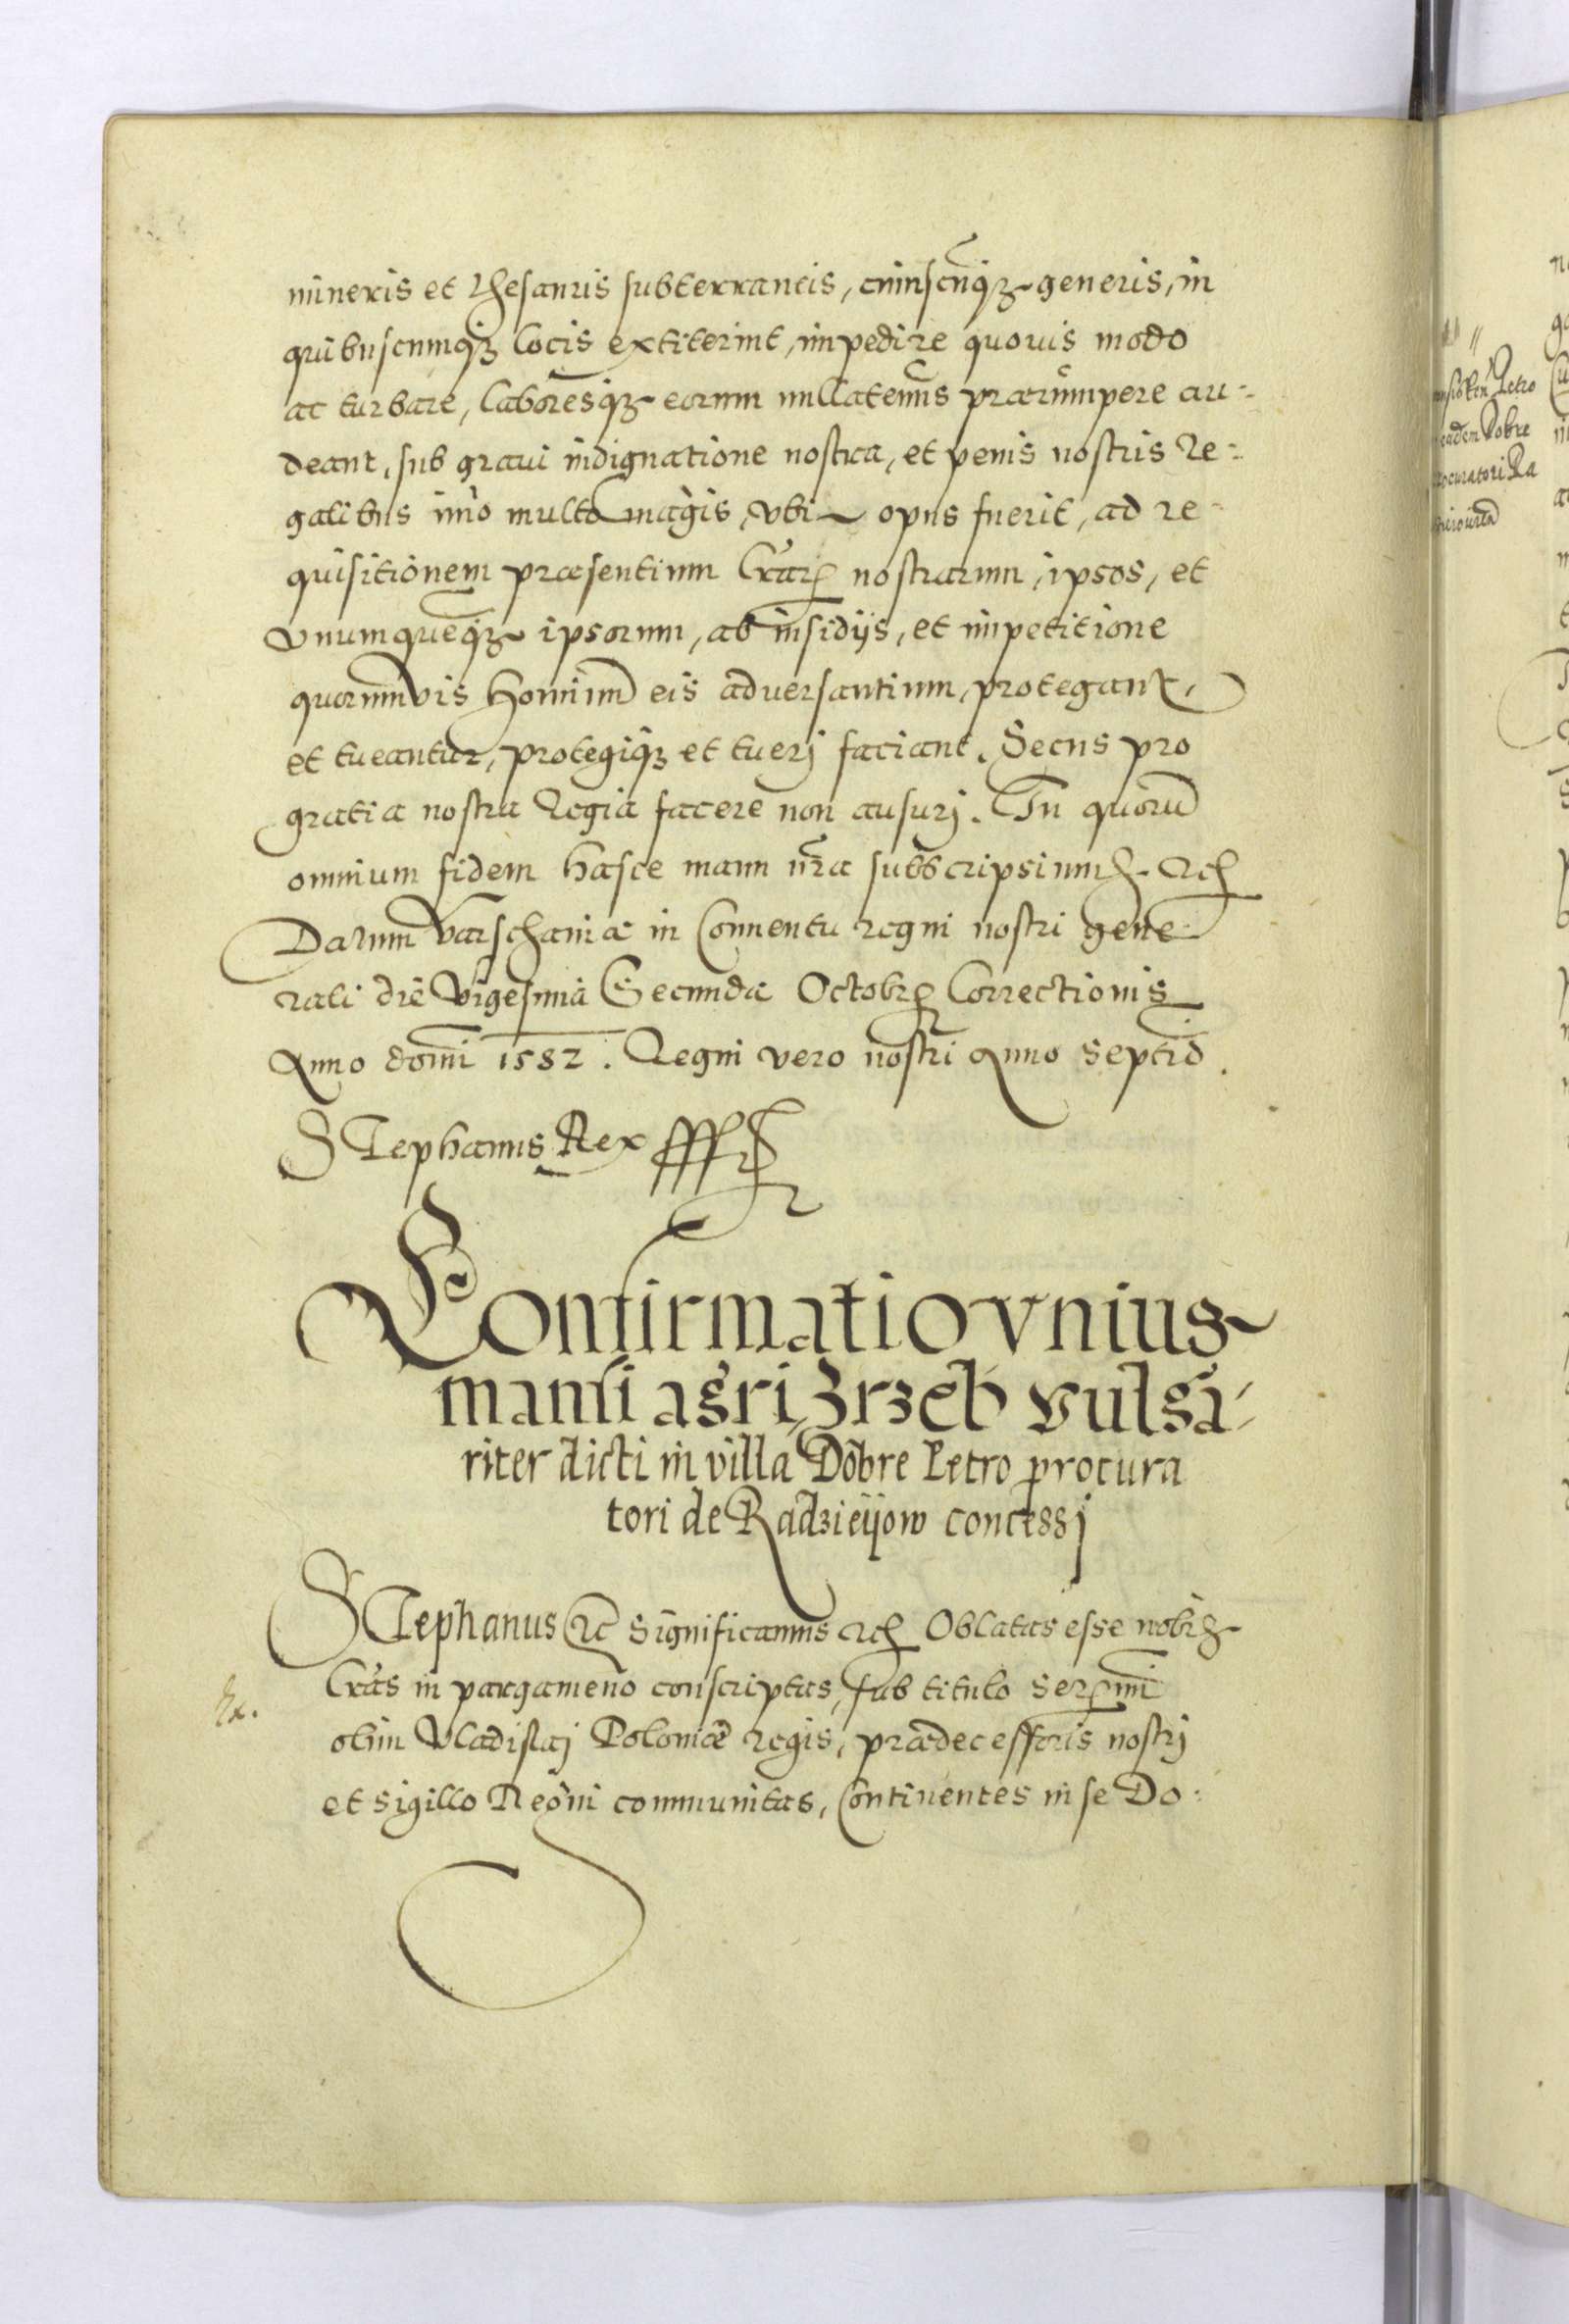 mineris et thesauris subterraneis, cuiuscunqȝ generis, in
quibuscumqȝ locis extiterint, impedire quouis modo
ac turbare, laboresqȝ eorum nullatenus prærumpere au-
deant, sub graui indignatione nostra, et penis nostris Re-
galibus imò multo magis, vbi opus fuerit, ad re-
quisitionem præsentium Lrarꝝ nostrarum, ipsos, et
vnumquemqȝ ipsorum, ab insidijs, et impetitione
quorumvis hominũ eis adversantium, protegant,
et tueantur, protegiqȝ et tuerj faciant. Secus pro
gratia nostra Regia facere non ausurj. In quorũ
omnium fidem hasce manu nr̃a subscripsimus. etc
Datum Varschauiæ in Conuentu regni nostri gene-
rali die Vigesima Secunda Octobrꝭ Correctionis
Anno domī 1582. Regni vero nostri Anno septiō.
Stephanus Rex
Confirmatio vnius
mansi agri, Zrzeb vulga-
riter dicti in villa Dobre Petro procura
tori de Radzieyow concessj
Stephanus etc Significamus etc Oblatas esse nobis
Lrãs in pargameno conscriptas, sub titulo Serꝰmi
olim Vladislaj Poloniæ regis, prædecessoris nostrj
et sigillo Regni communitas, Continentes in se Do-
nsioken Petro
eadem Dobre
rocuratori Ra